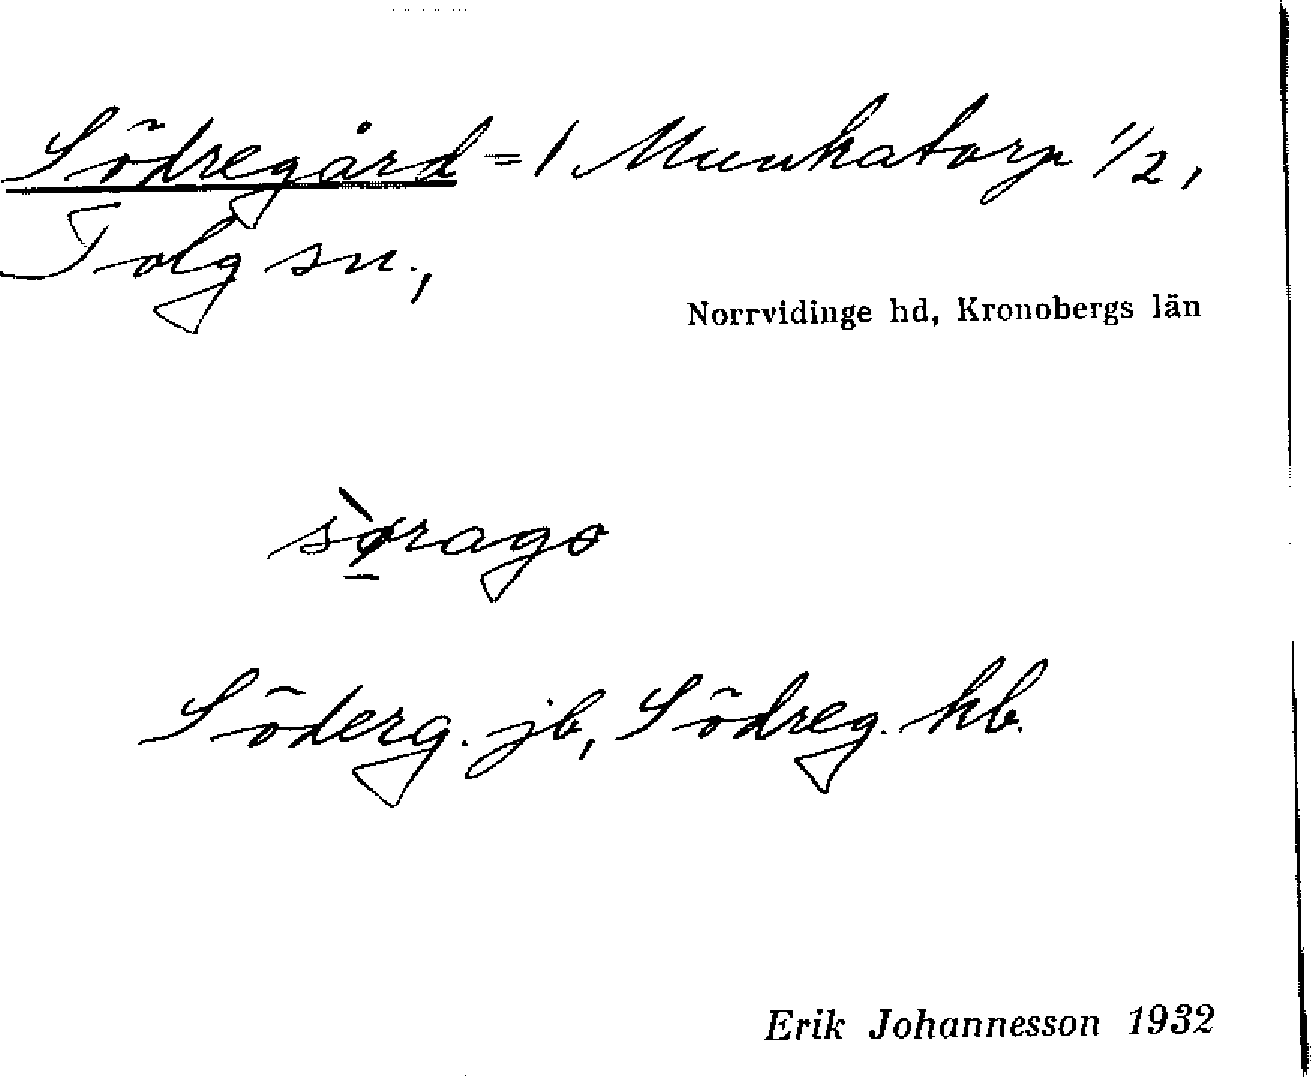 Södregård = 1 Munkatorp 1/2,
Tolg sn.,
Norrvidinge hd, Kronobergs län
sø̱̀rago
Söderg. jb, Södreg. hb.
Erik Johannesson 1932